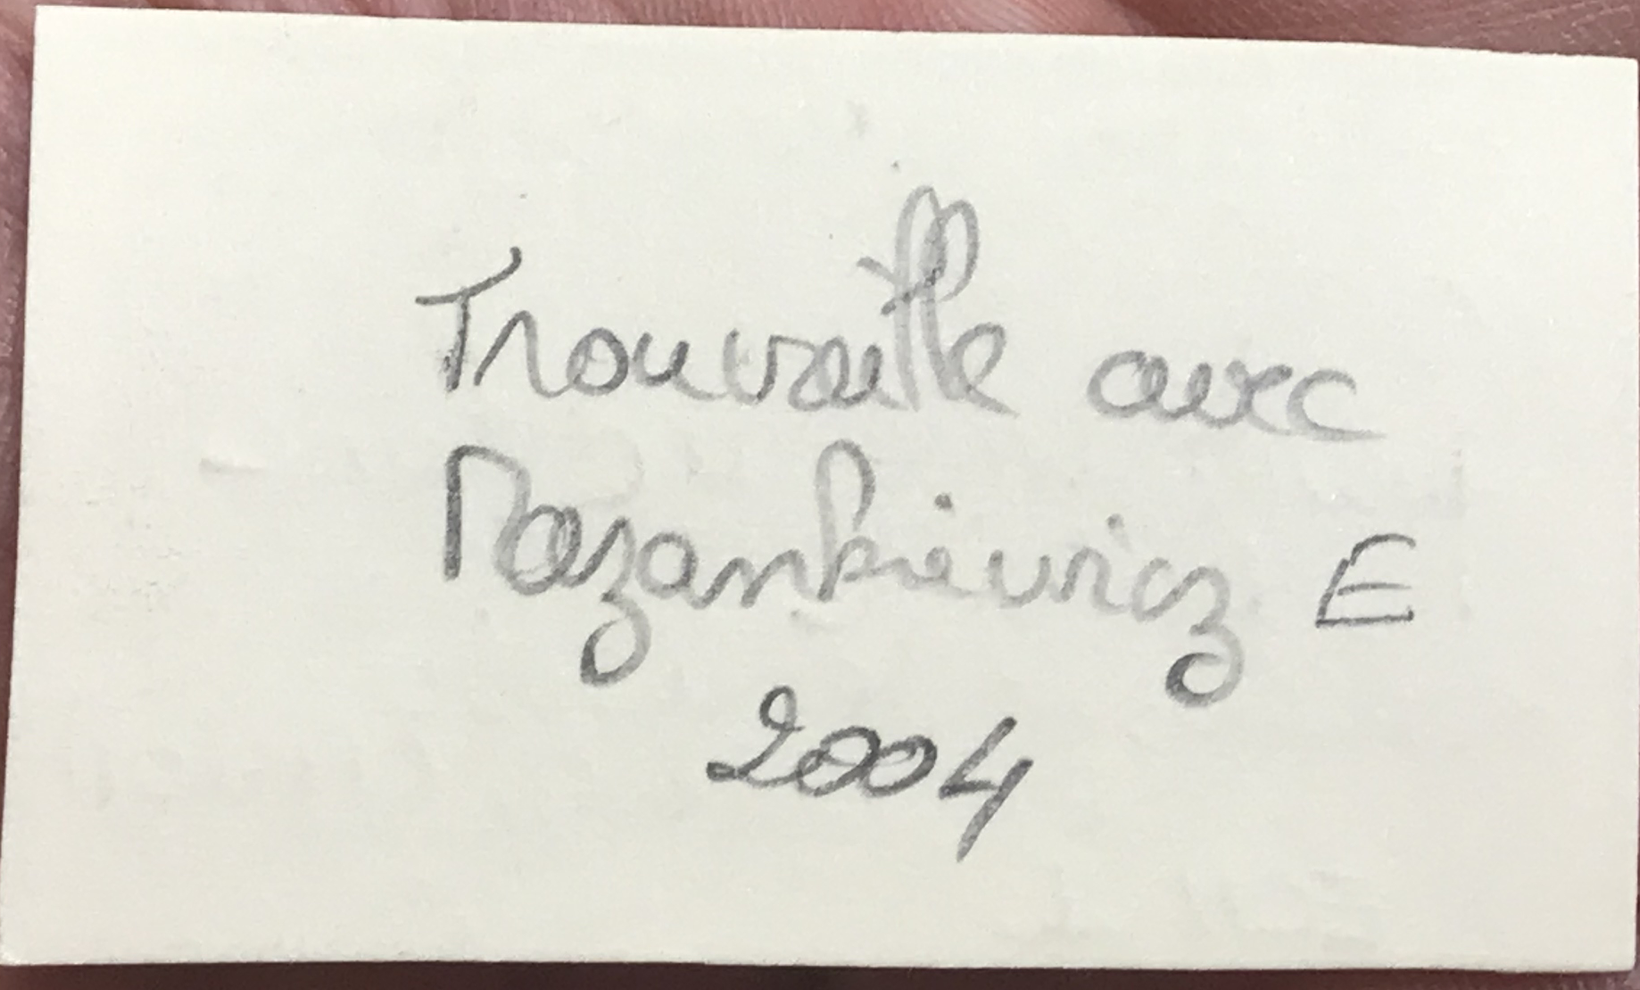 Trouvaille avec
Mazankiewicz E
2004